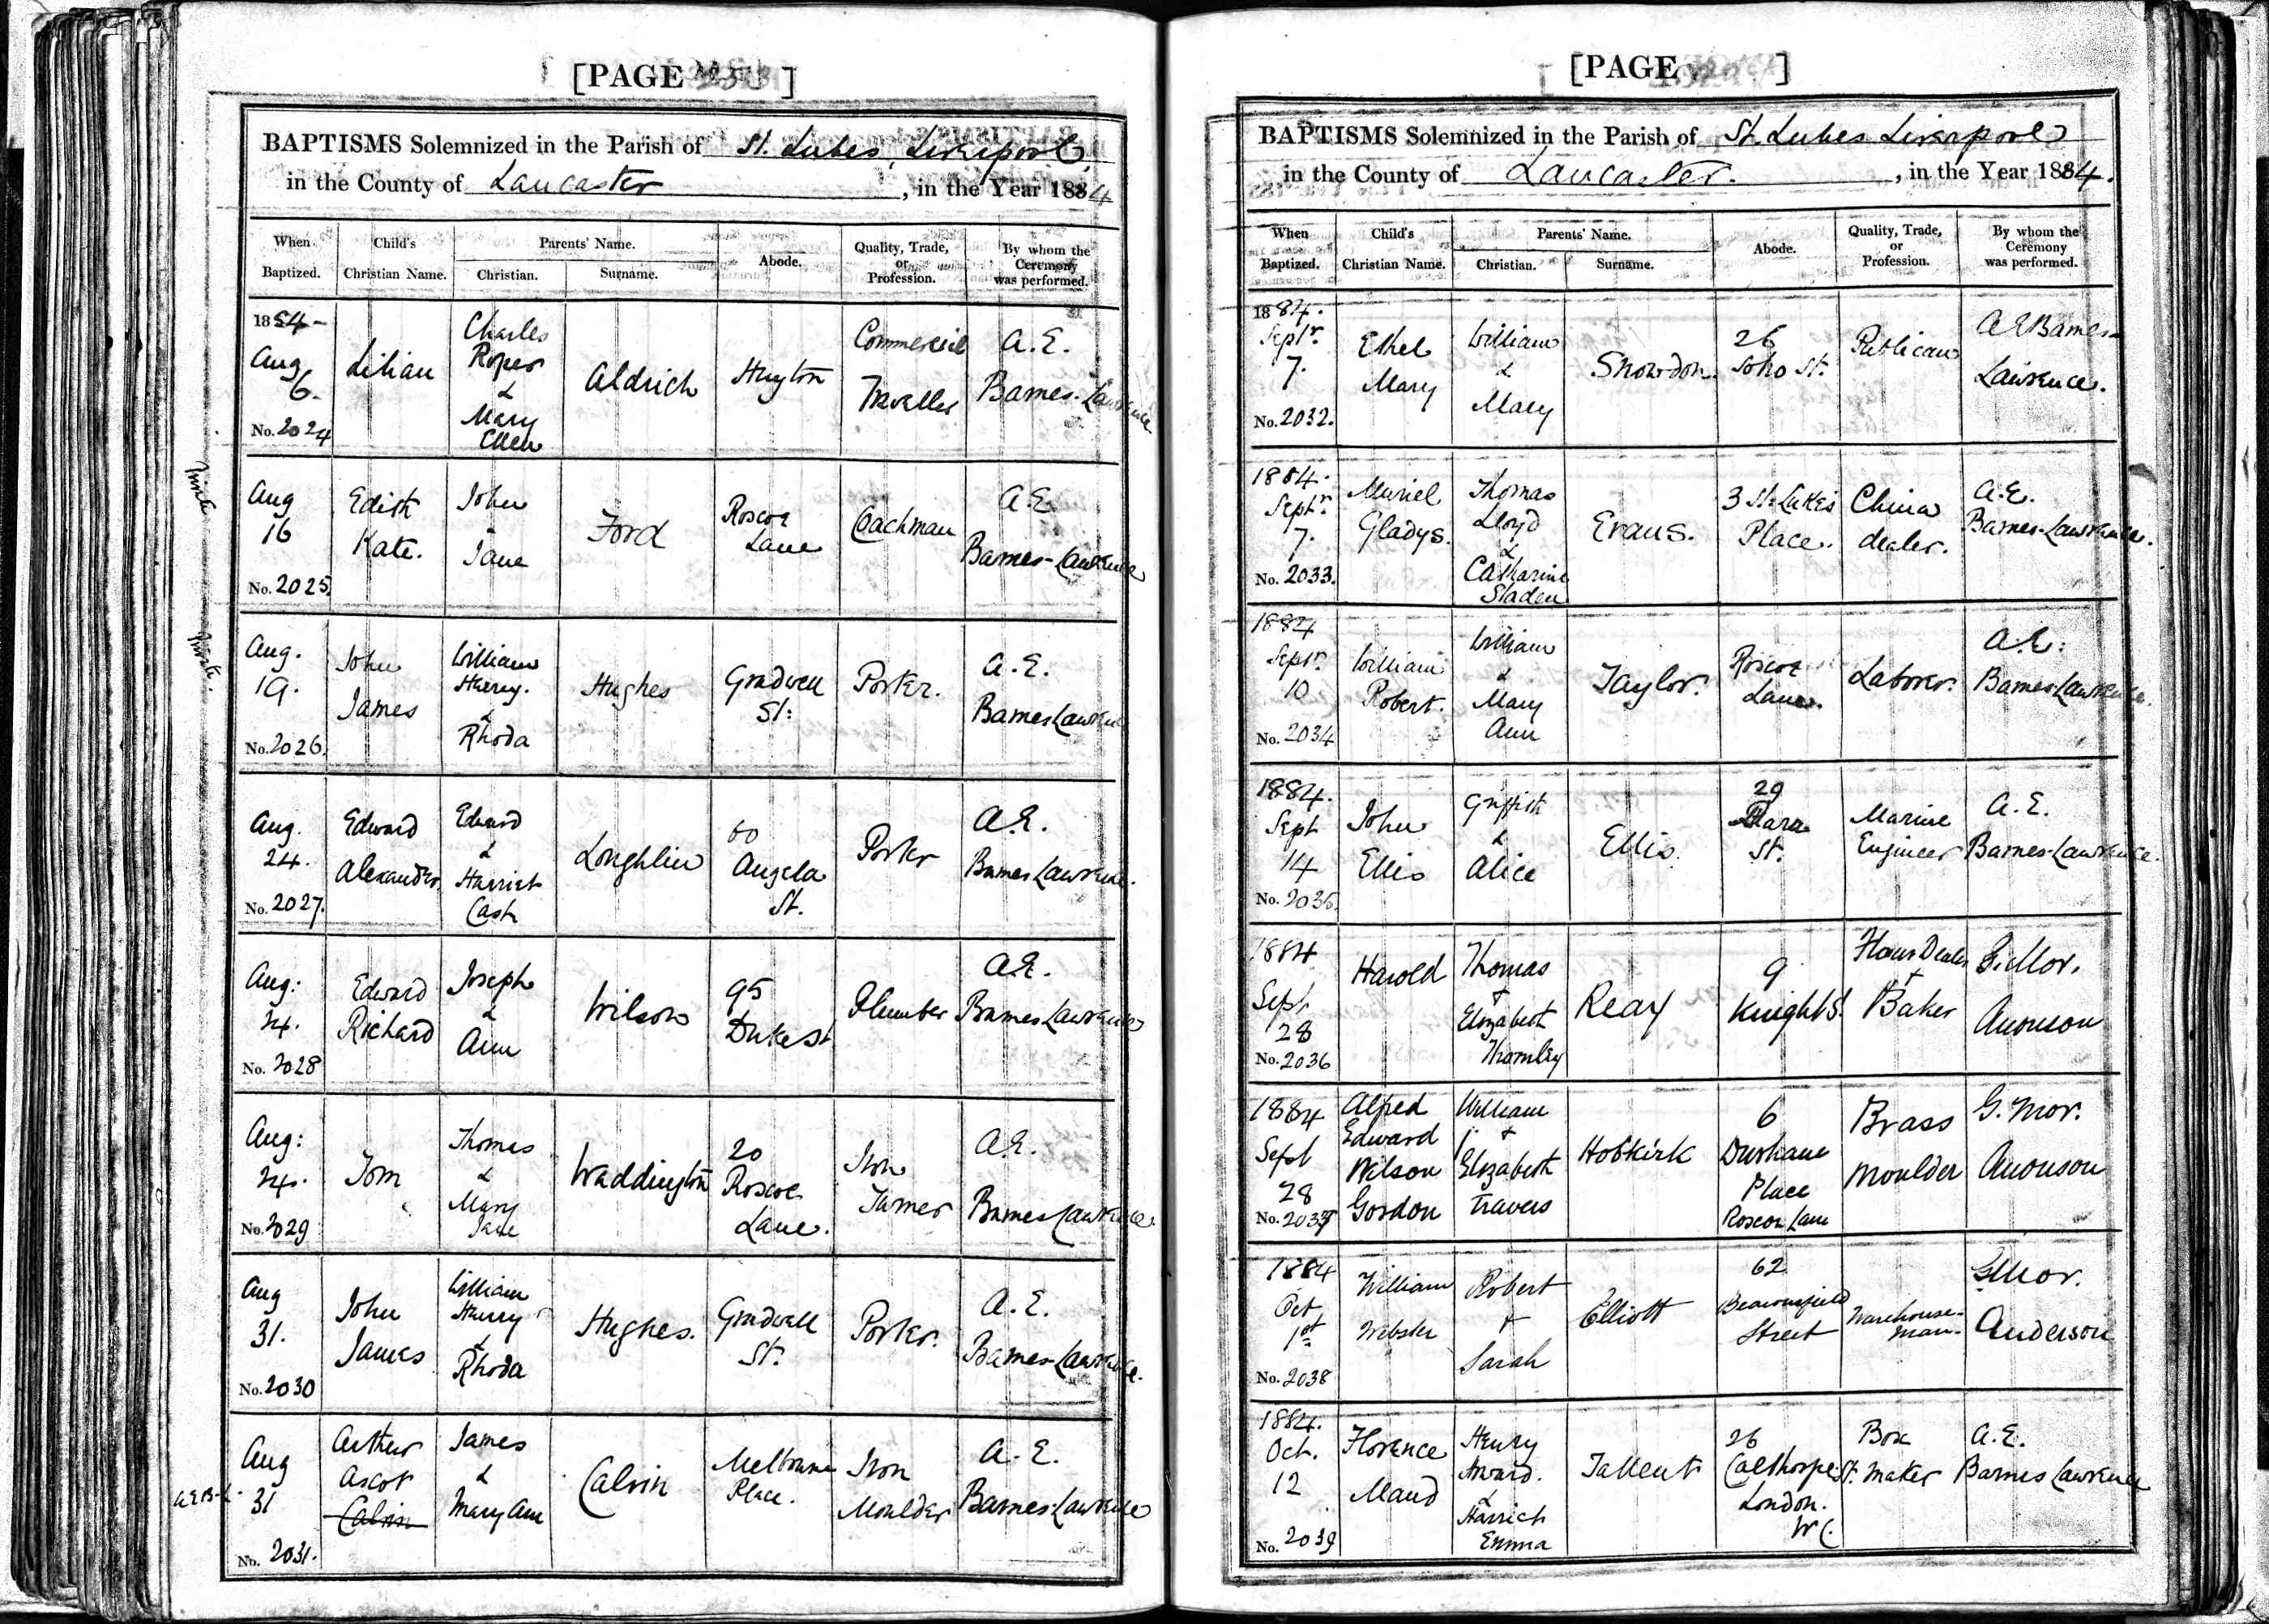 [PAGE ]
BAPTISMS Solemnized in the Parish of St. Lukes, Liverpool,
in the County of Lancaster, in the Year 1884
When Baptized.
Child's Christian Name.
Parents' Name.
Christian.
Surname.
Abode.
Quality, Trade, or Profession.
By whom the Ceremony was performed.
1884-
Aug
6.
No. 2024
Lilian
Charles
Roper
&
Mary
Ellen
Aldrich
Huyton
Commercial
Traveller
A.E.
Barnes-Lawrence
Private
Aug
16
No. 2025
Edith
Kate.
John
Jane
Ford
Roscoe
Lane
Coachman
A.E.
Barnes-Lawrence
Private.
Aug.
19.
No. 2026.
John
James
William
Harry.
&
Rhoda
Hughes
Gradwell
St:
Porter.
A.E.
Barnes Lawrence
Aug.
24.
No. 2027.
Edward
Alexander.
Edward
&
Harriet
Cash
Loughlin
60
Angela
St.
Porter
A.E.
Barnes Lawrence.
Aug:
24.
No. 2028
Edward
Richard
Joseph
&
Ann
Wilson
95
Duke St
Plumber
A.E.
Barnes Lawrence
Aug:
24.
No. 2029
Tom
Thomas
&
Mary
Jane
Waddington
20
Roscoe
Lane.
Iron
Turner
A.E.
Barnes Lawrence
Aug
31.
No. 2030
John
James
William
Harry
&
Rhoda
Hughes.
Gradwell
St.
Porter.
A.E.
Barnes-Lawrence.
A.E.B-L.
Aug
31
No. 2031.
Arthur
Ascot
Calvin
James
&
Mary Ann
Calvin
Melbourne
Place.
Iron
Moulder
A.E.
Barnes-Lawrence
[PAGE ]
BAPTISMS Solemnized in the Parish of St. Lukes Liverpool
in the County of Lancaster., in the Year 1884.
When Baptized.
Child's Christian Name.
Parents' Name.
Christian.
Surname.
Abode.
Quality, Trade, or Profession.
By whom the Ceremony was performed.
1884.
Septr.
7.
No. 2032.
Ethel
Mary
William
&
Mary
Snowdon.
26
Soho St.
Publican
A E Barnes-
Lawrence.
1884.
Septr.
7.
No. 2033.
Muriel
Gladys.
Thomas
Lloyd
&
Catharine
Sladen
Evans.
3 St. Luke's
Place.
China
dealer.
A.E.
Barnes-Lawrence.
1884
Septr.
10
No. 2034
William
Robert.
William
&
Mary
Ann
Taylor.
Roscoe
Lane.
Laborer.
A.E.
Barnes-Lawrence.
1884.
Sept
14
No. 2035.
John
Ellis
Griffith
&
Alice
Ellis.
29
St.
Marine
Engineer
A.E.
Barnes-Lawrence.
1884
Sept
28
No. 2036
Harold
Thomas
+
Elizabeth
Thornley
Reay
9
Knight S.
Flour Dealer
+
Baker
G. Mor.
Anonson
1884
Sept
28
No. 2037
Alfred
Edward
Wilson
Gordon
William
+
Elizabeth
Travers
Hobkirk
6
Place
Roscoe Lane
Brass
Moulder
G. Mor.
Anonson
1884
Oct
1st
No. 2038
William
Webster
Robert
+
Sarah
Elliott
62
Beaconsfield
Street
Warehouse-
man.
G Mor.
Anderson
1884.
Oct.
12
No. 2039
Florence
Maud
Henry
Howard.
&
Harriet
Emma
Tallent
26
Calthorpe St.
London.
W C.
Box
Maker
A.E.
Barnes Lawrence